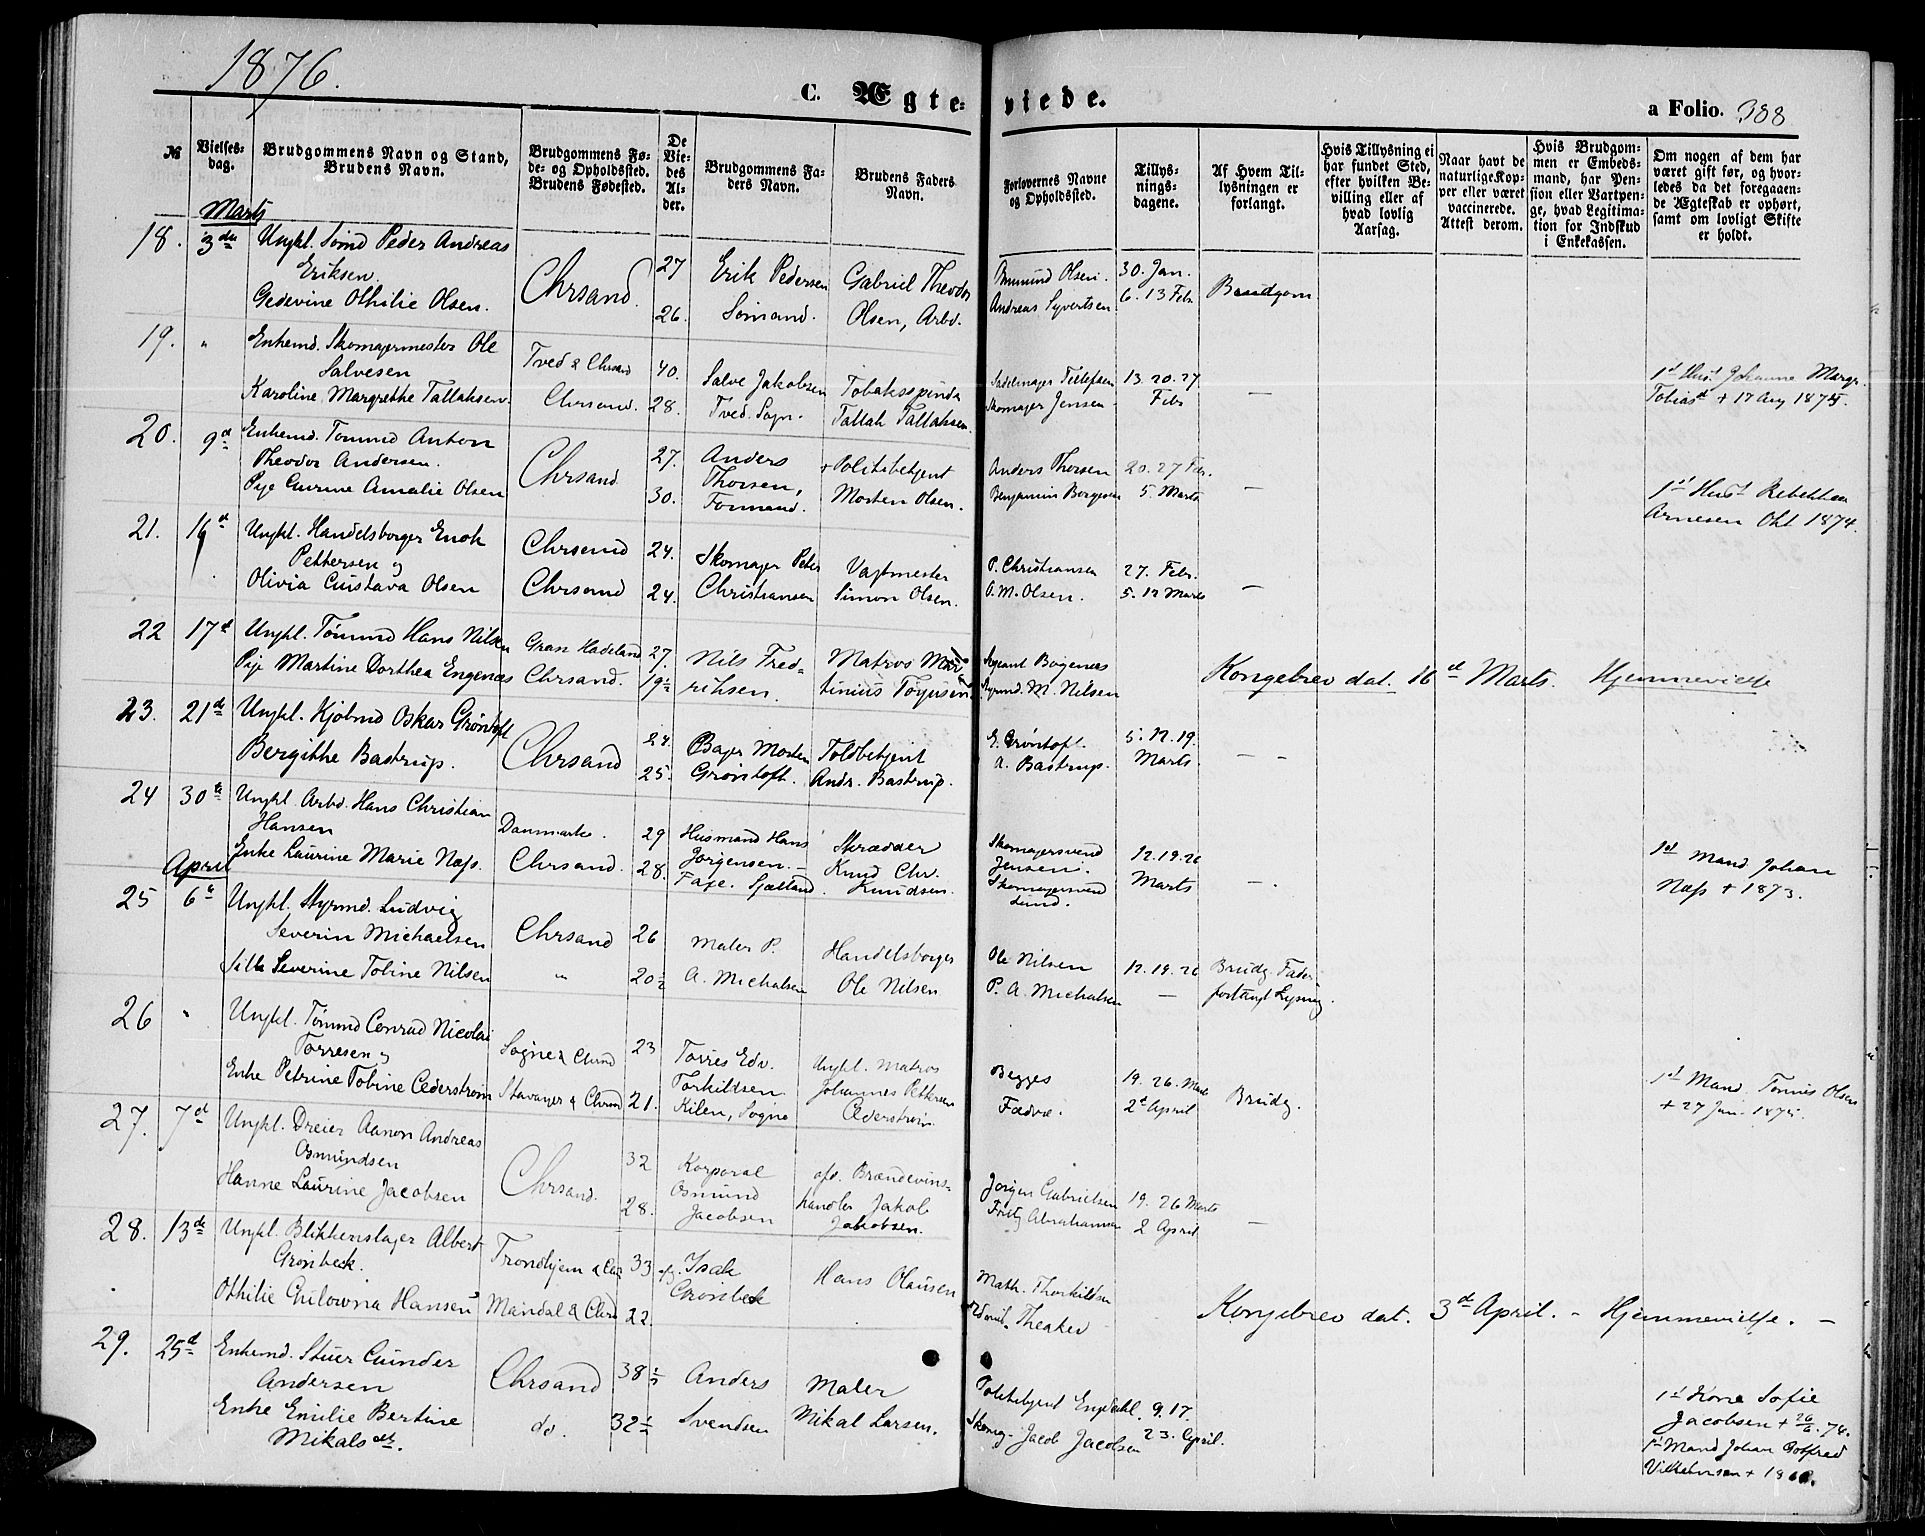 1876.
C. Ægte-
viede.
a Folio. 388
№
Vielses-
dag.
Brudgommens Navn og Stand,
Brudens Navn.
Brudgommens Fø-
de- og Opholdssted.
Brudens Fødested.
De
Vie-
des
Al-
der.
Brudgommens Fa-
ders Navn.
Brudens Faders
Navn.
Forlovernes Navne
og Opholdssted.
Tillys-
nings-
dagene.
Af Hvem Til-
lysningen er
forlangt.
Hvis Tillysning ei
har fundet Sted,
efter hvilken Be-
villing eller af
hvad lovlig
Aarsag.
Naar havt de
naturlige Kop-
per eller været
vaccinerede.
Attest derom.
Hvis Brudgom-
men er Embeds-
mand, har Pen-
sion eller Vartpen-
ge, hvad Legitima-
tion for Indskud
i Enkekassen.
Om nogen af dem har
været gift før, og hvor-
ledes da det foregaaen-
de Ægteskab er ophørt,
samt om lovligt Skifte
er holdt.
Marts
18. 3de Ungkl. Sømd Peder Andreas
Eriksen.
Gedevine Othilie Olsen.
Chrsand.
27
26.
Erik Pedersen
Sømand.
Gabriel Theodor
Olsen, Arbd.
Omund Olsen.
Andreas Syvertsen
30. Jan.
6. 13 Febr
Brudgom
19. " Enkemd. Skomagermester Ole
Salvesen
Karoline Margrethe Tallaksen.
Tved & Chrsand
Chrsand.
40.
28.
Salve Jakobsen
Tved. Sogn.
Tobaksspinder
Tallak Tallaksen
Sadelmager Tellefsen
Skomager Jensen
13. 20. 27.
Febr
—
1st Hust. Johanne Margr.
Tobiasd + 17 Aug 1875.
20. 9d Enkemd. Tømmd Anton
Theodor Andersen.
Pige Gurine Amalie Olsen
Chrsand
27.
30.
Anders
Thorsen,
Tømmand.
+ Politibetjent
Morten Olsen.
Anders Thorsen
Benjamin Borgesen
20. 27 Febr.
5. Marts
—
1st Hust Rebekka
Arnesen Okt. 1874.
21. 16d Ungkl. Handelsborger Enok
Pettersen og
Olivia Gustava Olsen
Chrsand
Chrsand
24.
24.
Skomager Peter
Christiansen
Vagtmester
Simon Olsen.
P. Christiansen
O. M. Olsen.
27. Febr.
5. 12 Marts
—
22 17d Ungkl. Tømmd Hans Nilsen
Pige Martine Dorthea Engenæs
Gran Hadeland
Chrsand.
27.
19½
Nils Fred-
riksen.
Matros Mar-
tinius Tørjusen
Sergeant Bogenæs
Styrmd. M. Nilsen
Kongebrev dat. 16d Marts. Hjemmevielse
23. 21de Ungkl. Kjøbmd Oskar Grøntoft
Bergitthe Bastrup.
Chrsand
24.
25.
Bager Morten
Grøntoft.
Toldbetjent
Andr. Bastrup.
E. Grøntoft.
A. Bastrup.
5. 12. 19.
Marts.
— -
24 30te Ungkl. Arbd. Hans Christian
Hansen
Enke Laurine Marie Næss.
Danmark.
Chrsand.
29
28.
Husmand Hans
Jørgensen. —
Faxe. Sjælland.
Skrædder
Knud Chr.
Knudsen.
Skomagersvend
Jensen.
Skomagersvend
Lund.
12. 19. 26
Marts
—.
1st Mand Johan
Næss + 1873.
April
25 6te Ungkl. Styrmd. Ludvig
Severin Michaelsen
Silla Severine Tobine Nilsen
Chrsand
"
26
20½
Maler P.
A. Michalsen
Handelsborger
Ole Nilsen
Ole Nilsen
P. A. Michalsen
12. 19. 26
—
Brudg. Fader
forlangt Lysning.
26 " Ungkl. Tømmd Conrad Nicolai
Torresen og
Enke Petrine Tobine Cederstrøm
Sogne & Chrsd
Stavanger & Chrsd
23
21.
Torres Edv.
Torkildsen
Kilen, Sogne
Ungkl. Matros
Johannes Pettersen
Cederstrøm.
Begges
Fædre.
19. 26. Marts
2d April
Brudg.
1st Mand. Tønnes Olsen
+ 27 Jan. 1875.
27. 7d Ungkl. Dreier Aanon Andreas
Osmundsen
Hanne Laurine Jacobsen
Chrsand.
32
28.
Korporal
Osmund
Jacobsen
afd. Brændevins-
handler Jakob
Jakobsen.
Jørgen Gabrielsen
Fritz Abrahamsen
19. 26 Marts
2 April
—
28. 13de Ungkl. Blikkenslager Albert
Grønbeck.
Othilie Gulowna Hansen
Trondhjem & Chrs
Mandal & Chrsd
33
22.
Isak
Grønbeck
Hans Olausen
Math. Thorkildsen
Theaker
Kongebrev dat. 3d April. - Hjemmevielse. —
29. 25d Enkemd. Stuer Gunder
Andersen
Enke Emilie Bertine
Mikalsdtt.
Chrsand
do.
38½
32½
Anders
Svendsen
Maler
Mikal Larsen.
Politibetjent Engedahl.
Skomg. Jacob Jacobsen
9. 17.
23. April.
1st Kone Sofie
Jacobsen + 26/6 74.
1st Mand Johan Gotfred